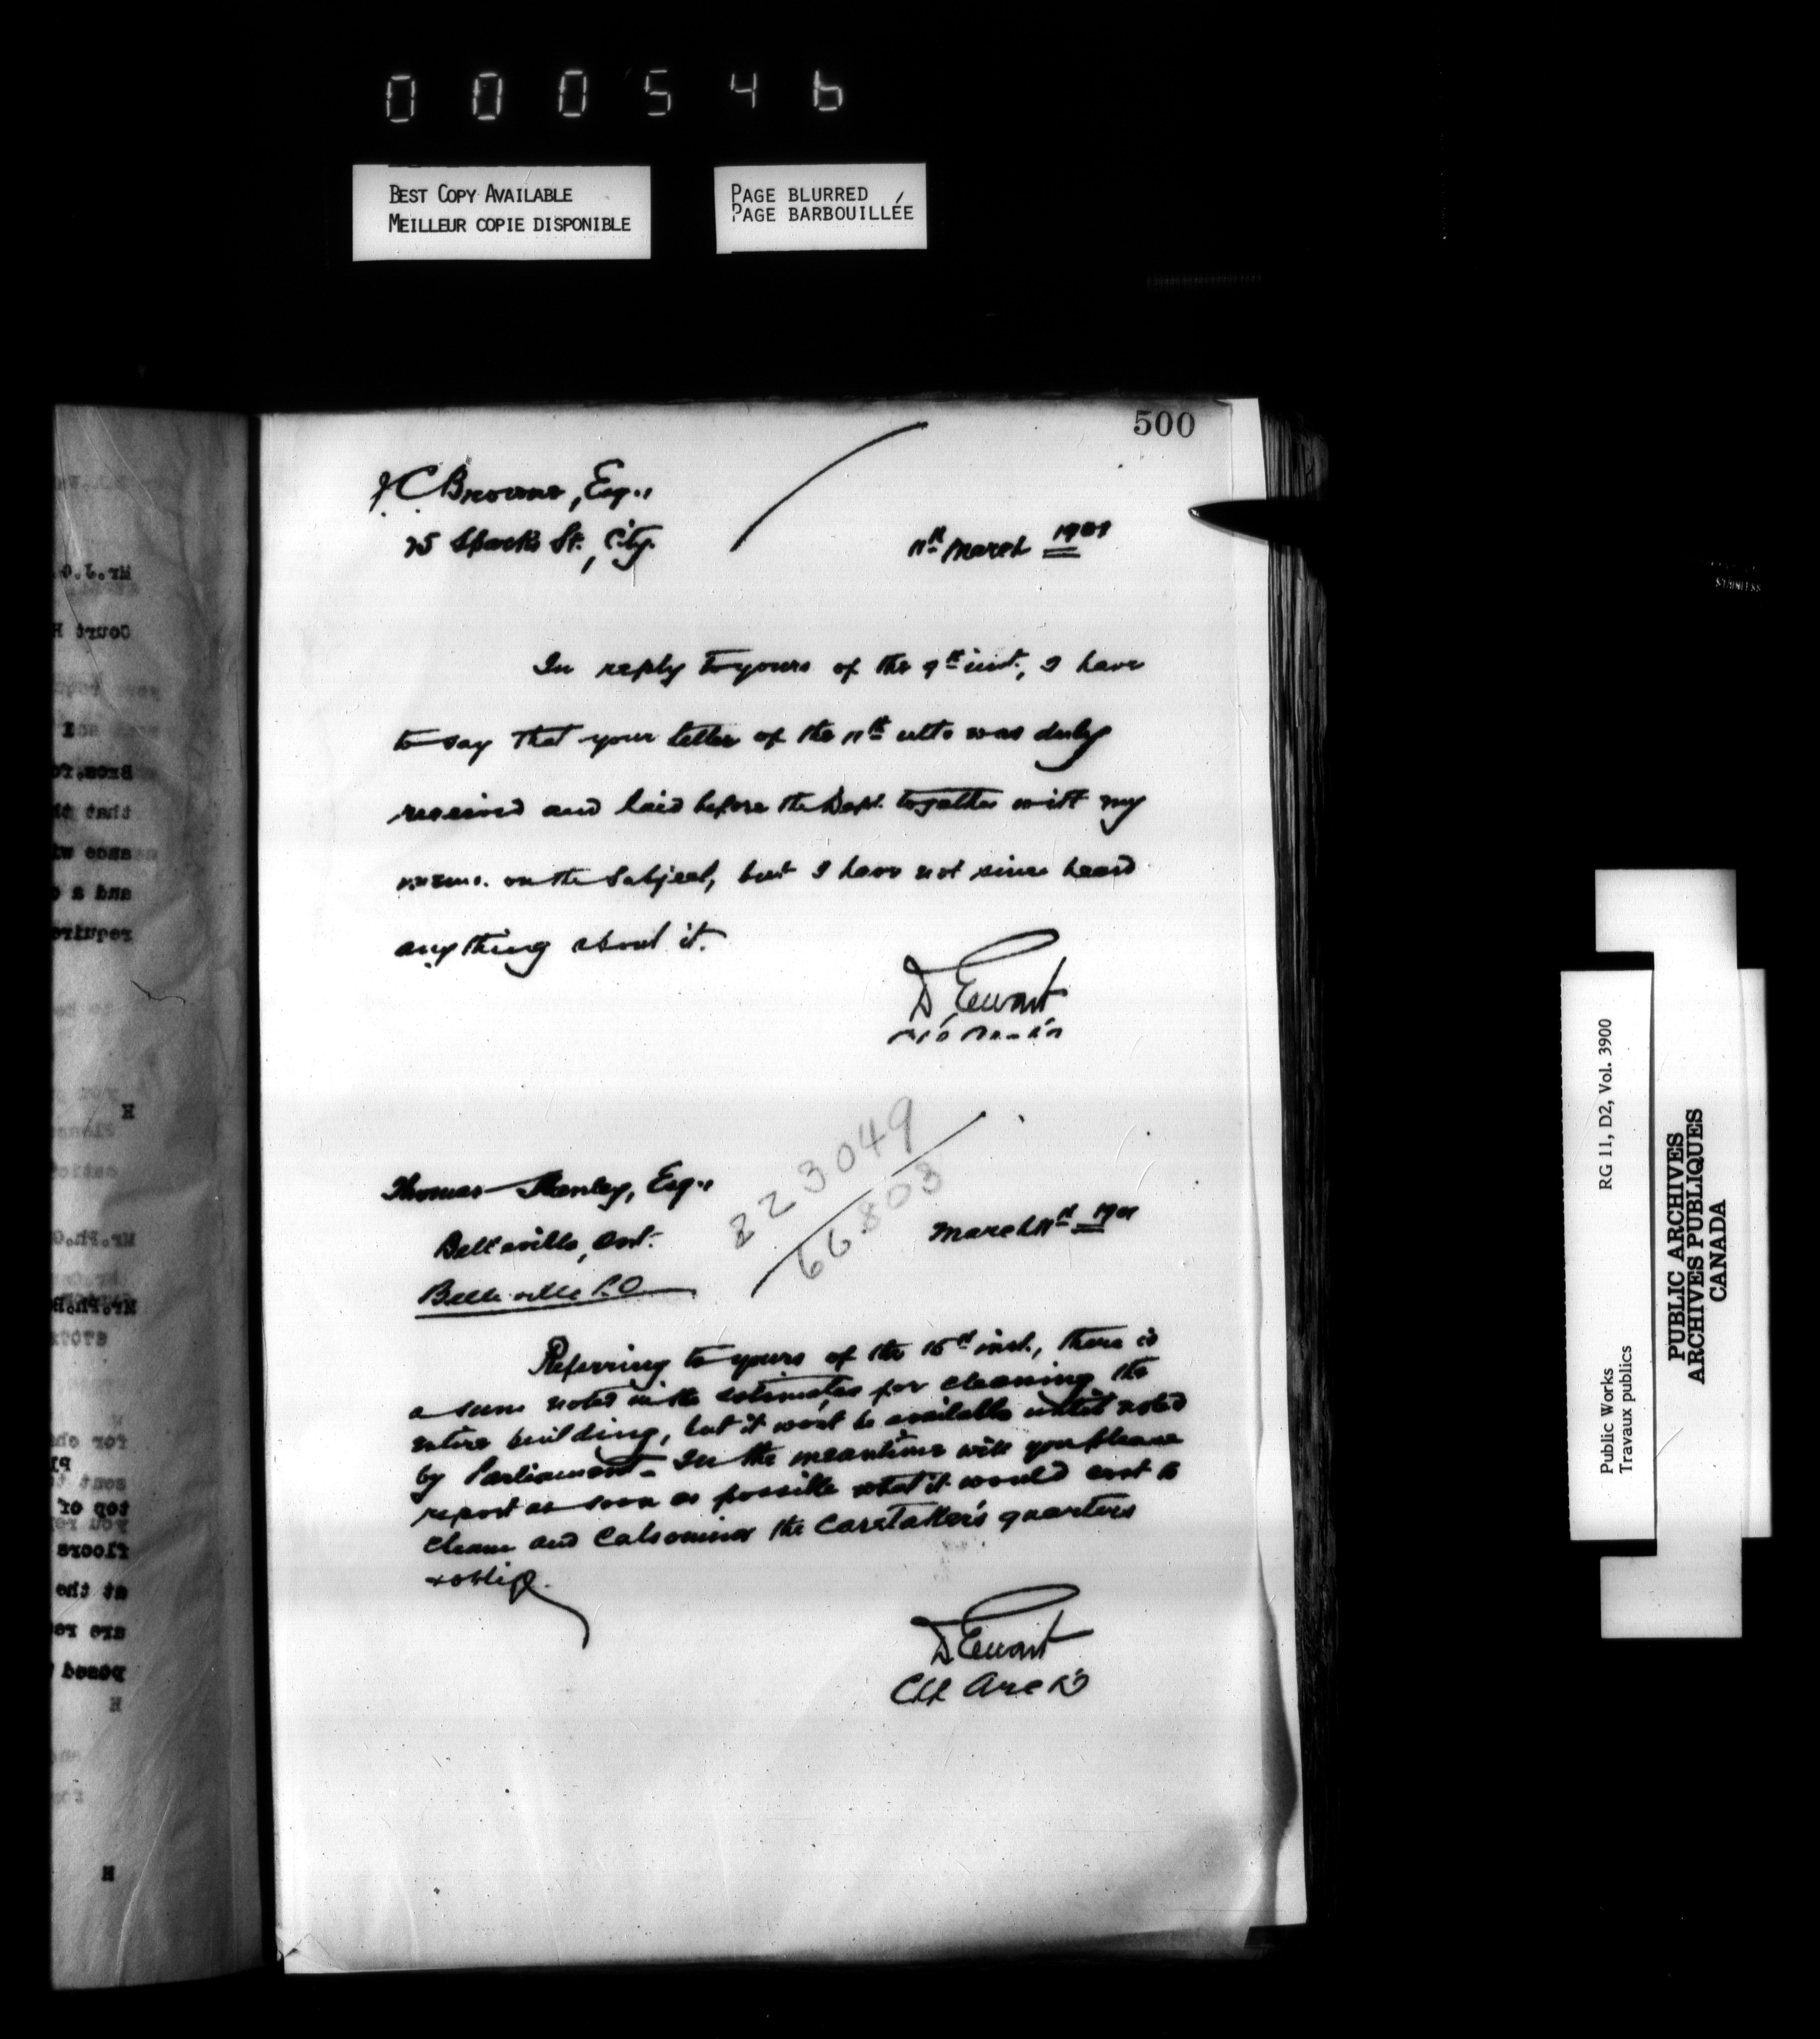 000546
BEST COPY AVAILABLE
MEILLEUR COPIE DISPONIBLE
PAGE BLURRED
PAGE BARBOUILLÉE
500
J.C. Browne, Esq.,
75 Sparks St., City.
11th March 1901
In reply to yours of the 9th inst., I have
to say that your letter of the 11th ulto was duly
received and laid before the Dept. together with my
memo. on the subject, but I have not since heard
anything about it.
D. Ewart
223049
66803
Thomas Hanley, Esq.,
Belleville, Ont.
March 11th 1901
Belleville P.O.
Referring to yours of the inst., there is
a sum noted in the estimates for cleaning the
entire building, but it won't be available until voted
by Parliament. In the meantime will you please
report as soon as possible what it would cost to
clean and Calsomine the Caretaker's quarters
D. Ewart
Ch Arch
STAINLESS
Public Works
Travaux publics
RG 11, D2, Vol. 3900
PUBLIC ARCHIVES
ARCHIVES PUBLIQUES
CANADA